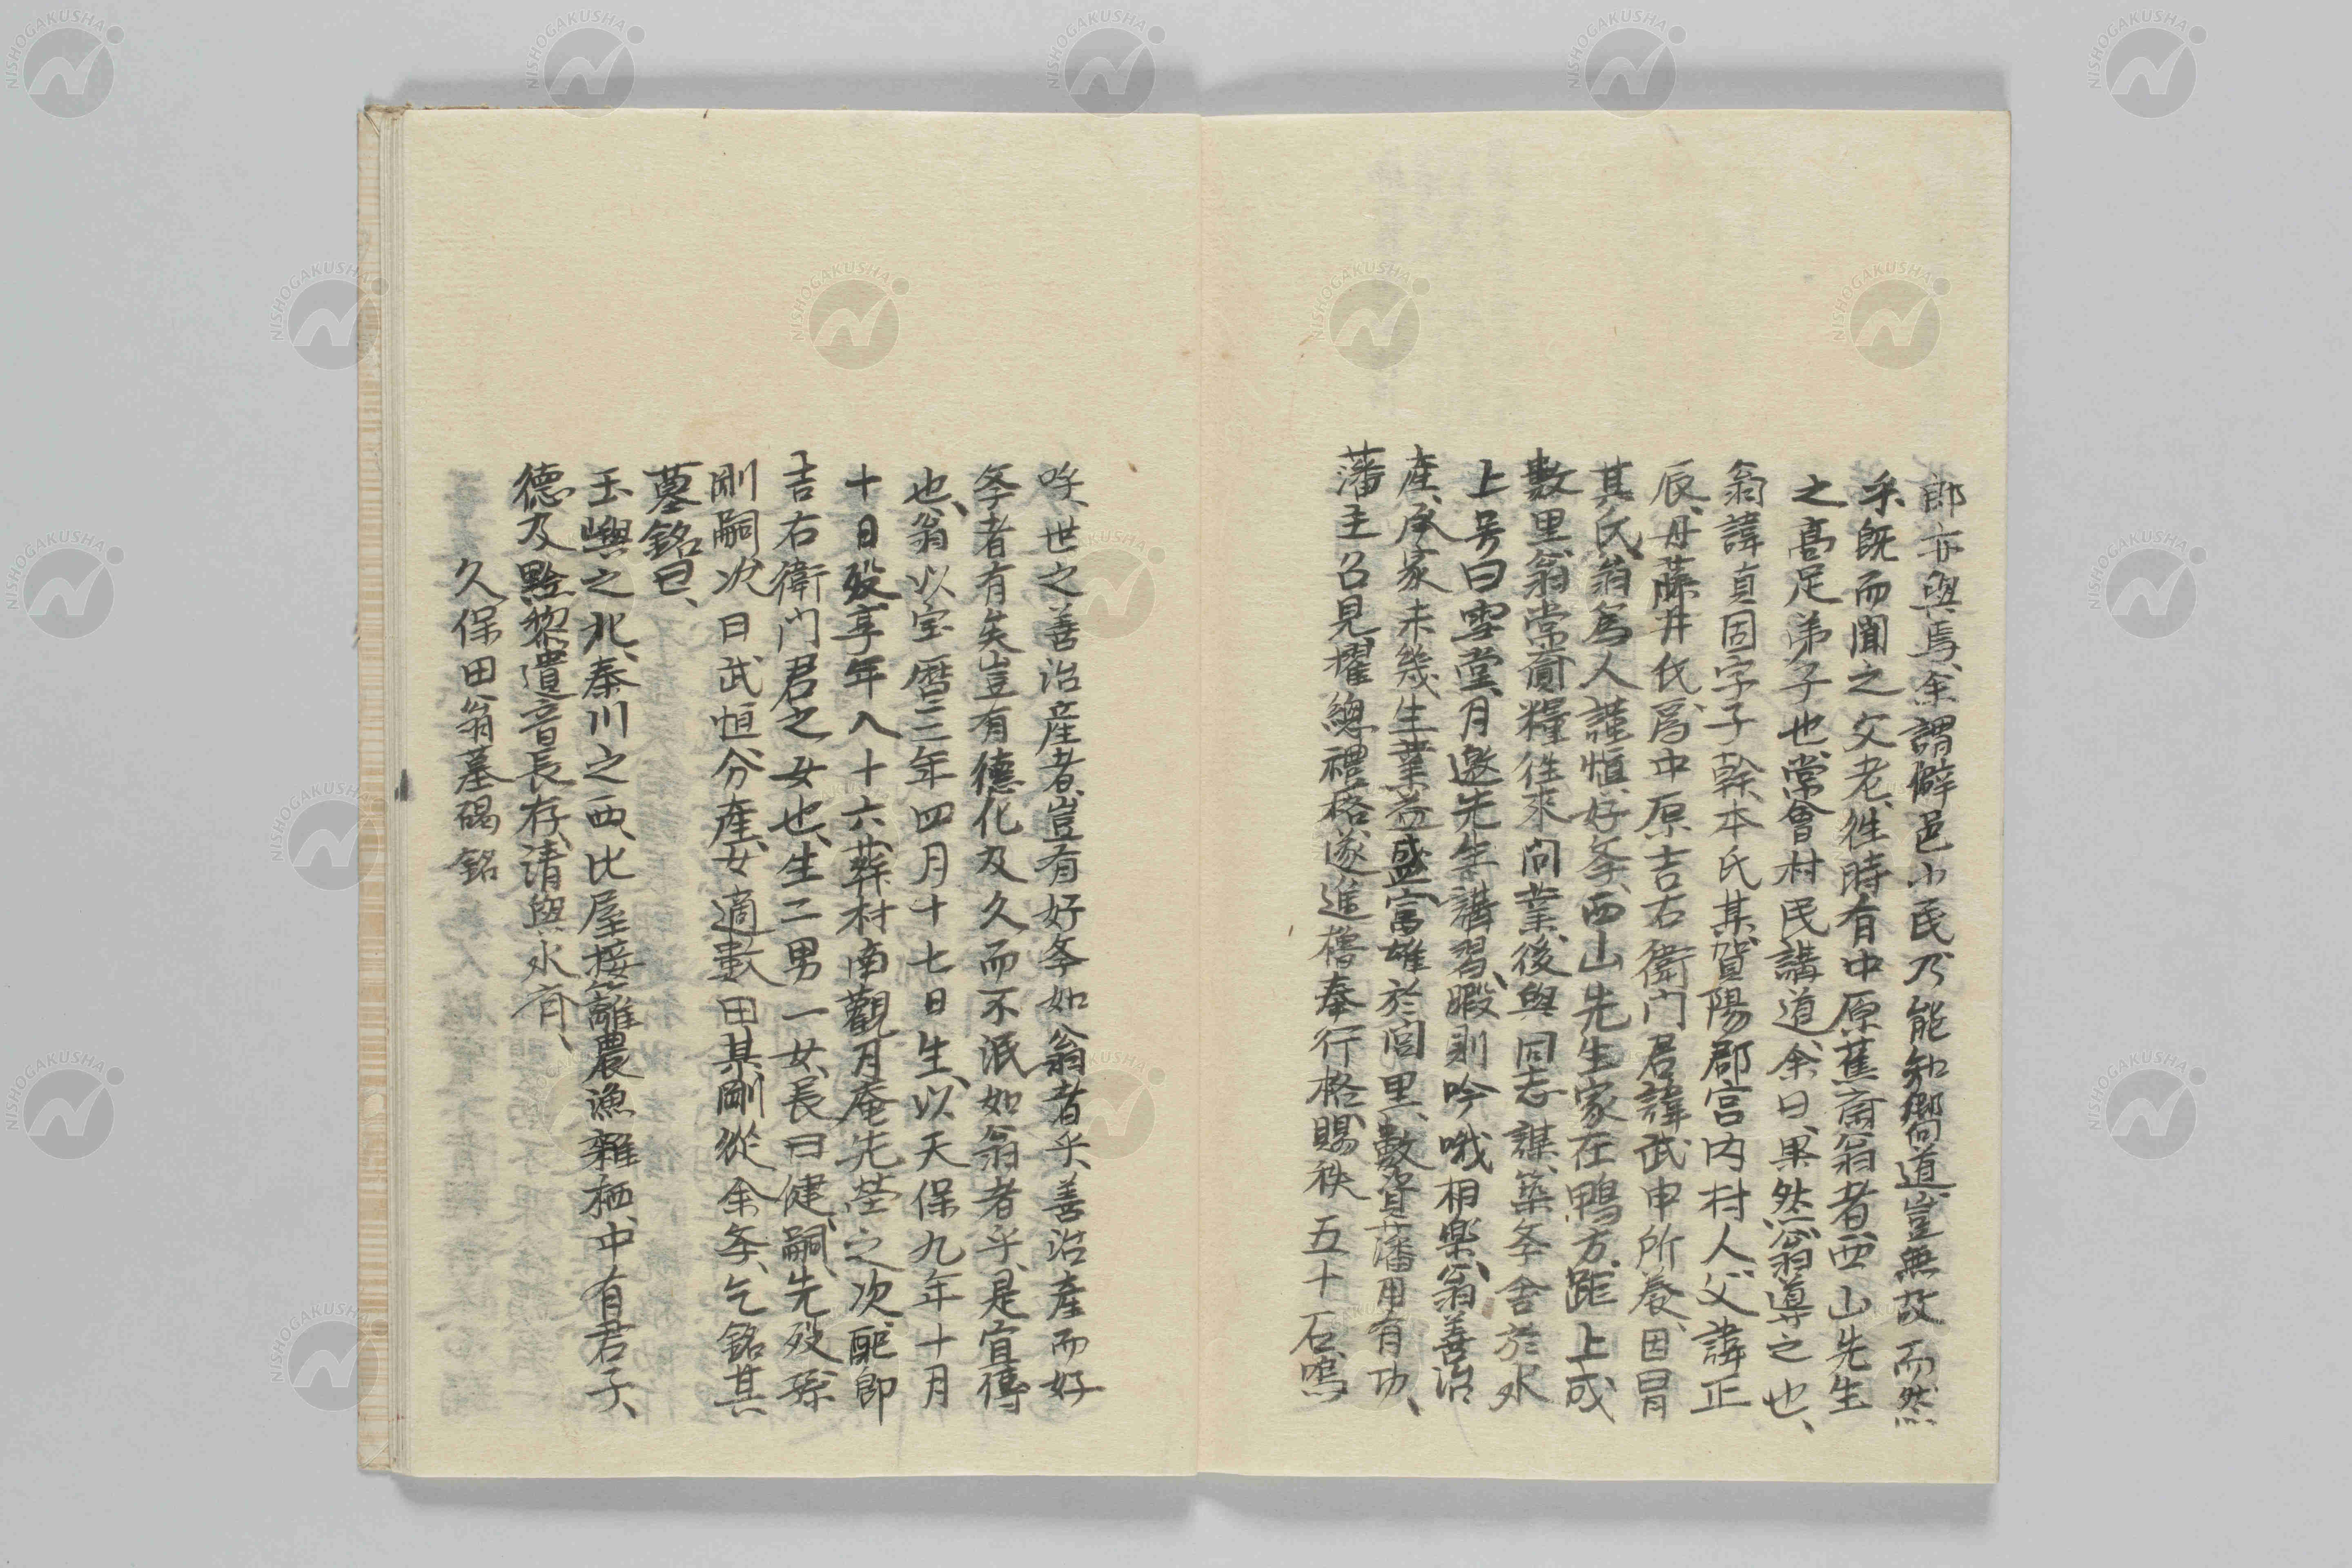 郎亦與焉、余謂僻邑小民乃能知嚮道豈無故而然
乎、既而聞之父老、往時有中原蕉齋翁者、西山先生
之高足弟子也、常會村民講道、余曰、果然、翁導之也、
翁諱貞固字子幹本氏某、賀陽郡宮内村人、父諱正
辰、母藤井氏、爲中原吉右衛門君諱武申所養、因冒
其氏、翁爲人謹恒、好学、西山先生家在鴨方、距上成
數里、翁常齎糧往來問業、後與同志謀、築学舎於水
上号曰雲堂、月邀先生講習、暇則吟哦相樂、翁善治
産、承家未幾生業益盛、富雄於閭里、數資藩用有功、
藩主召見、擢總禮格遂進櫓奉行格、賜秩五十石、嗚
呼、世之善治産者、豈有好学如翁者乎、善治産而好
学者有矣豈有德化及久而不泯如翁者乎、是宜傳
也、翁以宝暦三年四月十七日生、以天保九年十月
十日歿、享年八十六、葬村南觀月庵先塋之次、配即
吉右衛門君之女也、生二男一女、長曰健、嗣、先歿、孫
剛嗣、次曰武恒分産、女適數田某、剛從余学、乞銘其
墓、銘曰、
玉嶼之北、秦川之西、比屋接籬農漁雜栖、中有君子、
德及黔黎遺音長存、清與水齊、
久保田翁墓碣銘
NISHOGAKUSHA